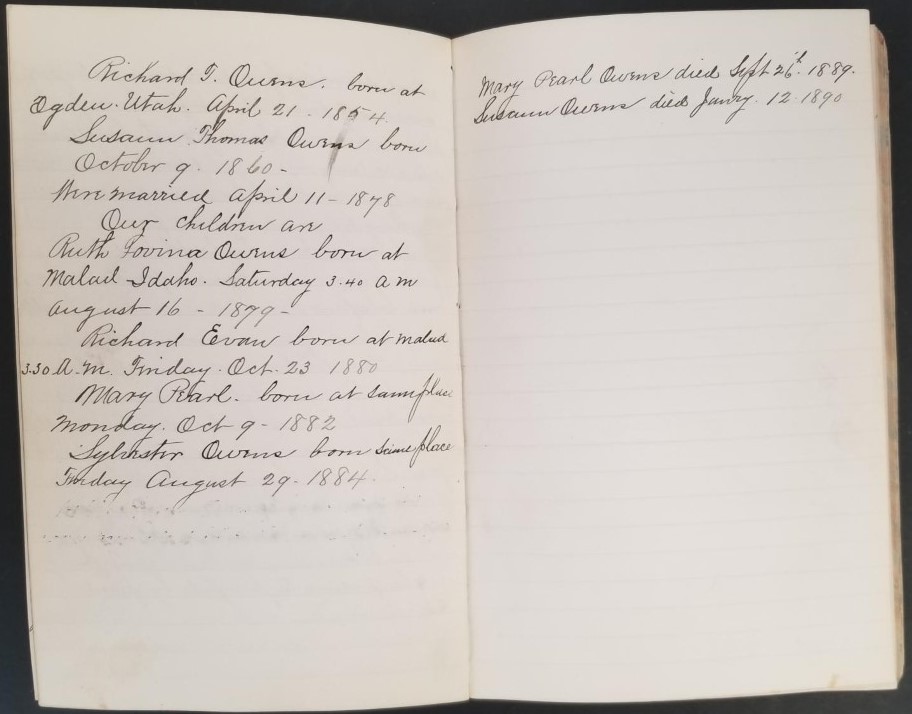 Richard T. Owens. born at
Ogden. Utah. April 21 - 1854.
Susann Thomas Owens born
October 9. 1860-
Were married April 11 - 1878
Our children are
Ruth Lovina Owens born at
Malad Idaho. Saturday 3.40 a m
August 16 - 1879-
Richard Evan born at Malad
3.30 A.M. Friday. Oct. 23 1880
Mary Pearl. born at same place
Monday. Oct 9 - 1882
Sylvester Owens born same place
Friday August 29. 1884.
Mary Pearl Owens died Sept 26th. 1889.
Susann Owens died Janry. 12 1890